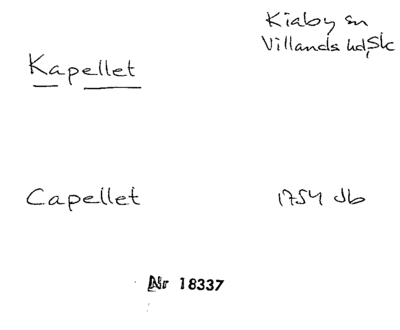 Kiaby sn
Villands hd, Sk
Kapellet
Capellet 1754 Jb
Nr 18337